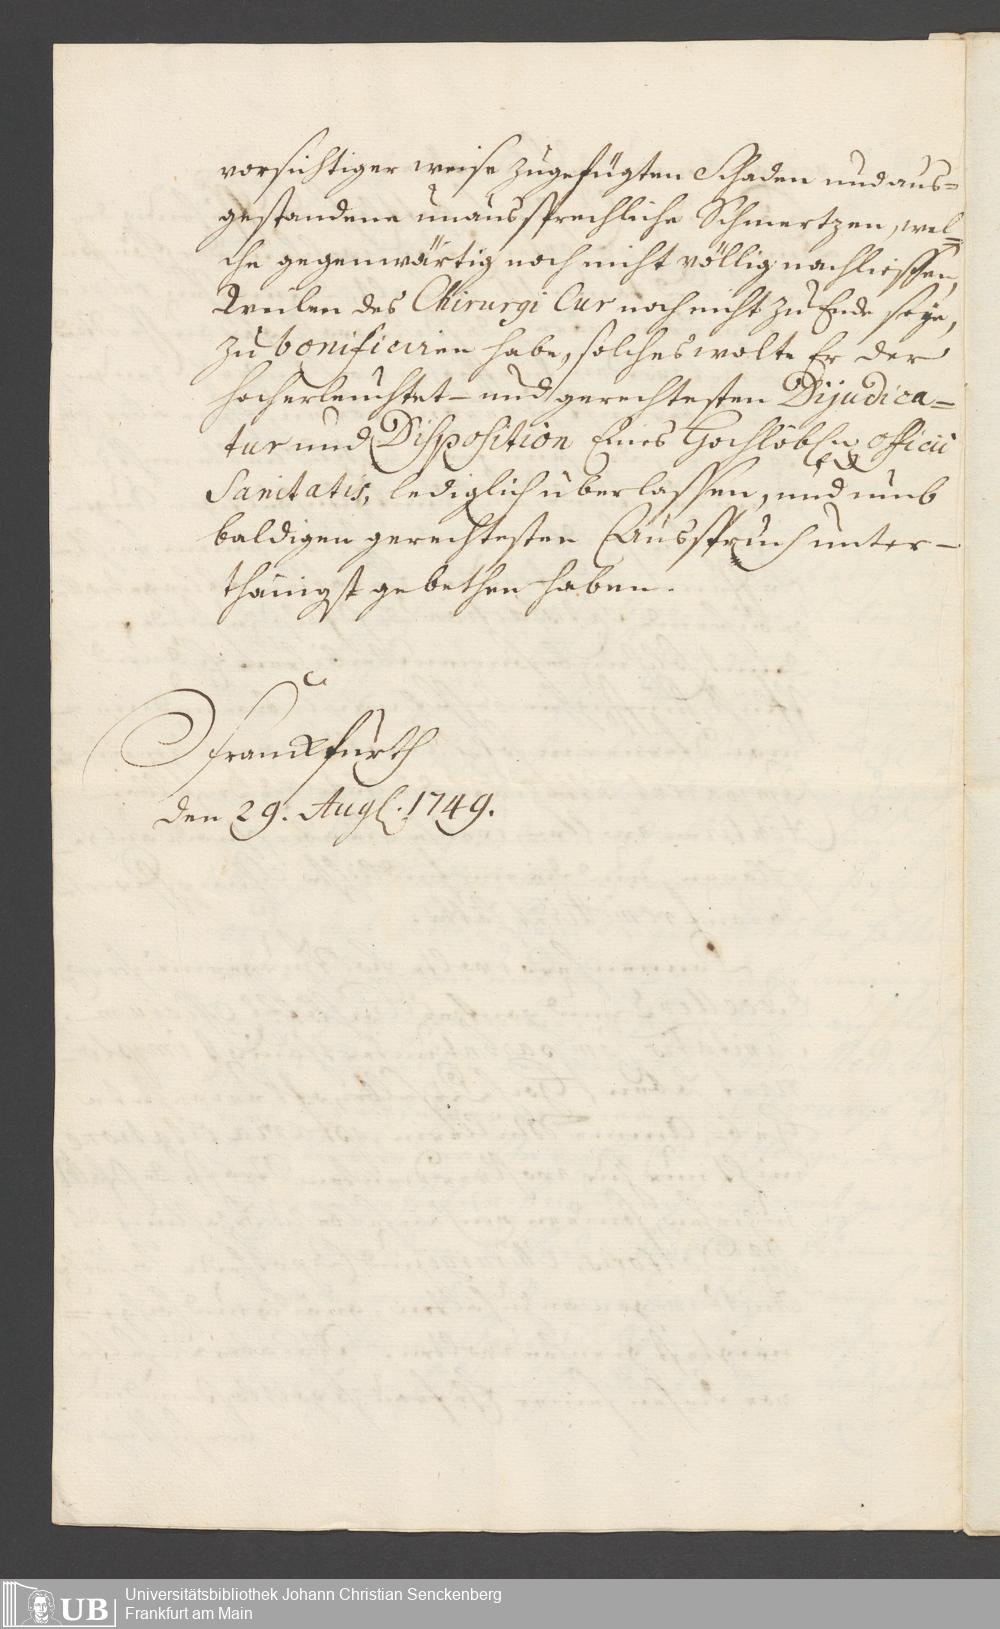 vorsichtiger weise zugefügten Schaden und aus=
gestandene unaussprechliche Schmertzen, wel=
che gegenwärtig noch nicht völlig nachliessen,
Weilen des Chirurgi Cur noch nicht zu Ende seye,
zu bonificiren habe, solches wolte Er der
hocherleuchtet- und gerechtesten Dijudica-
tur und Disposition Eines Hochlöbl. officii
Sanitatis, lediglich überlassen, und umb
baldigen gerechtesten Ausspruch unter-
thänigst gebethen haben.
Franckfurth
den 29. Aug. 1749.
UB
Universitätsbibliothek Johann Christian Senckenberg
Frankfurt am Main